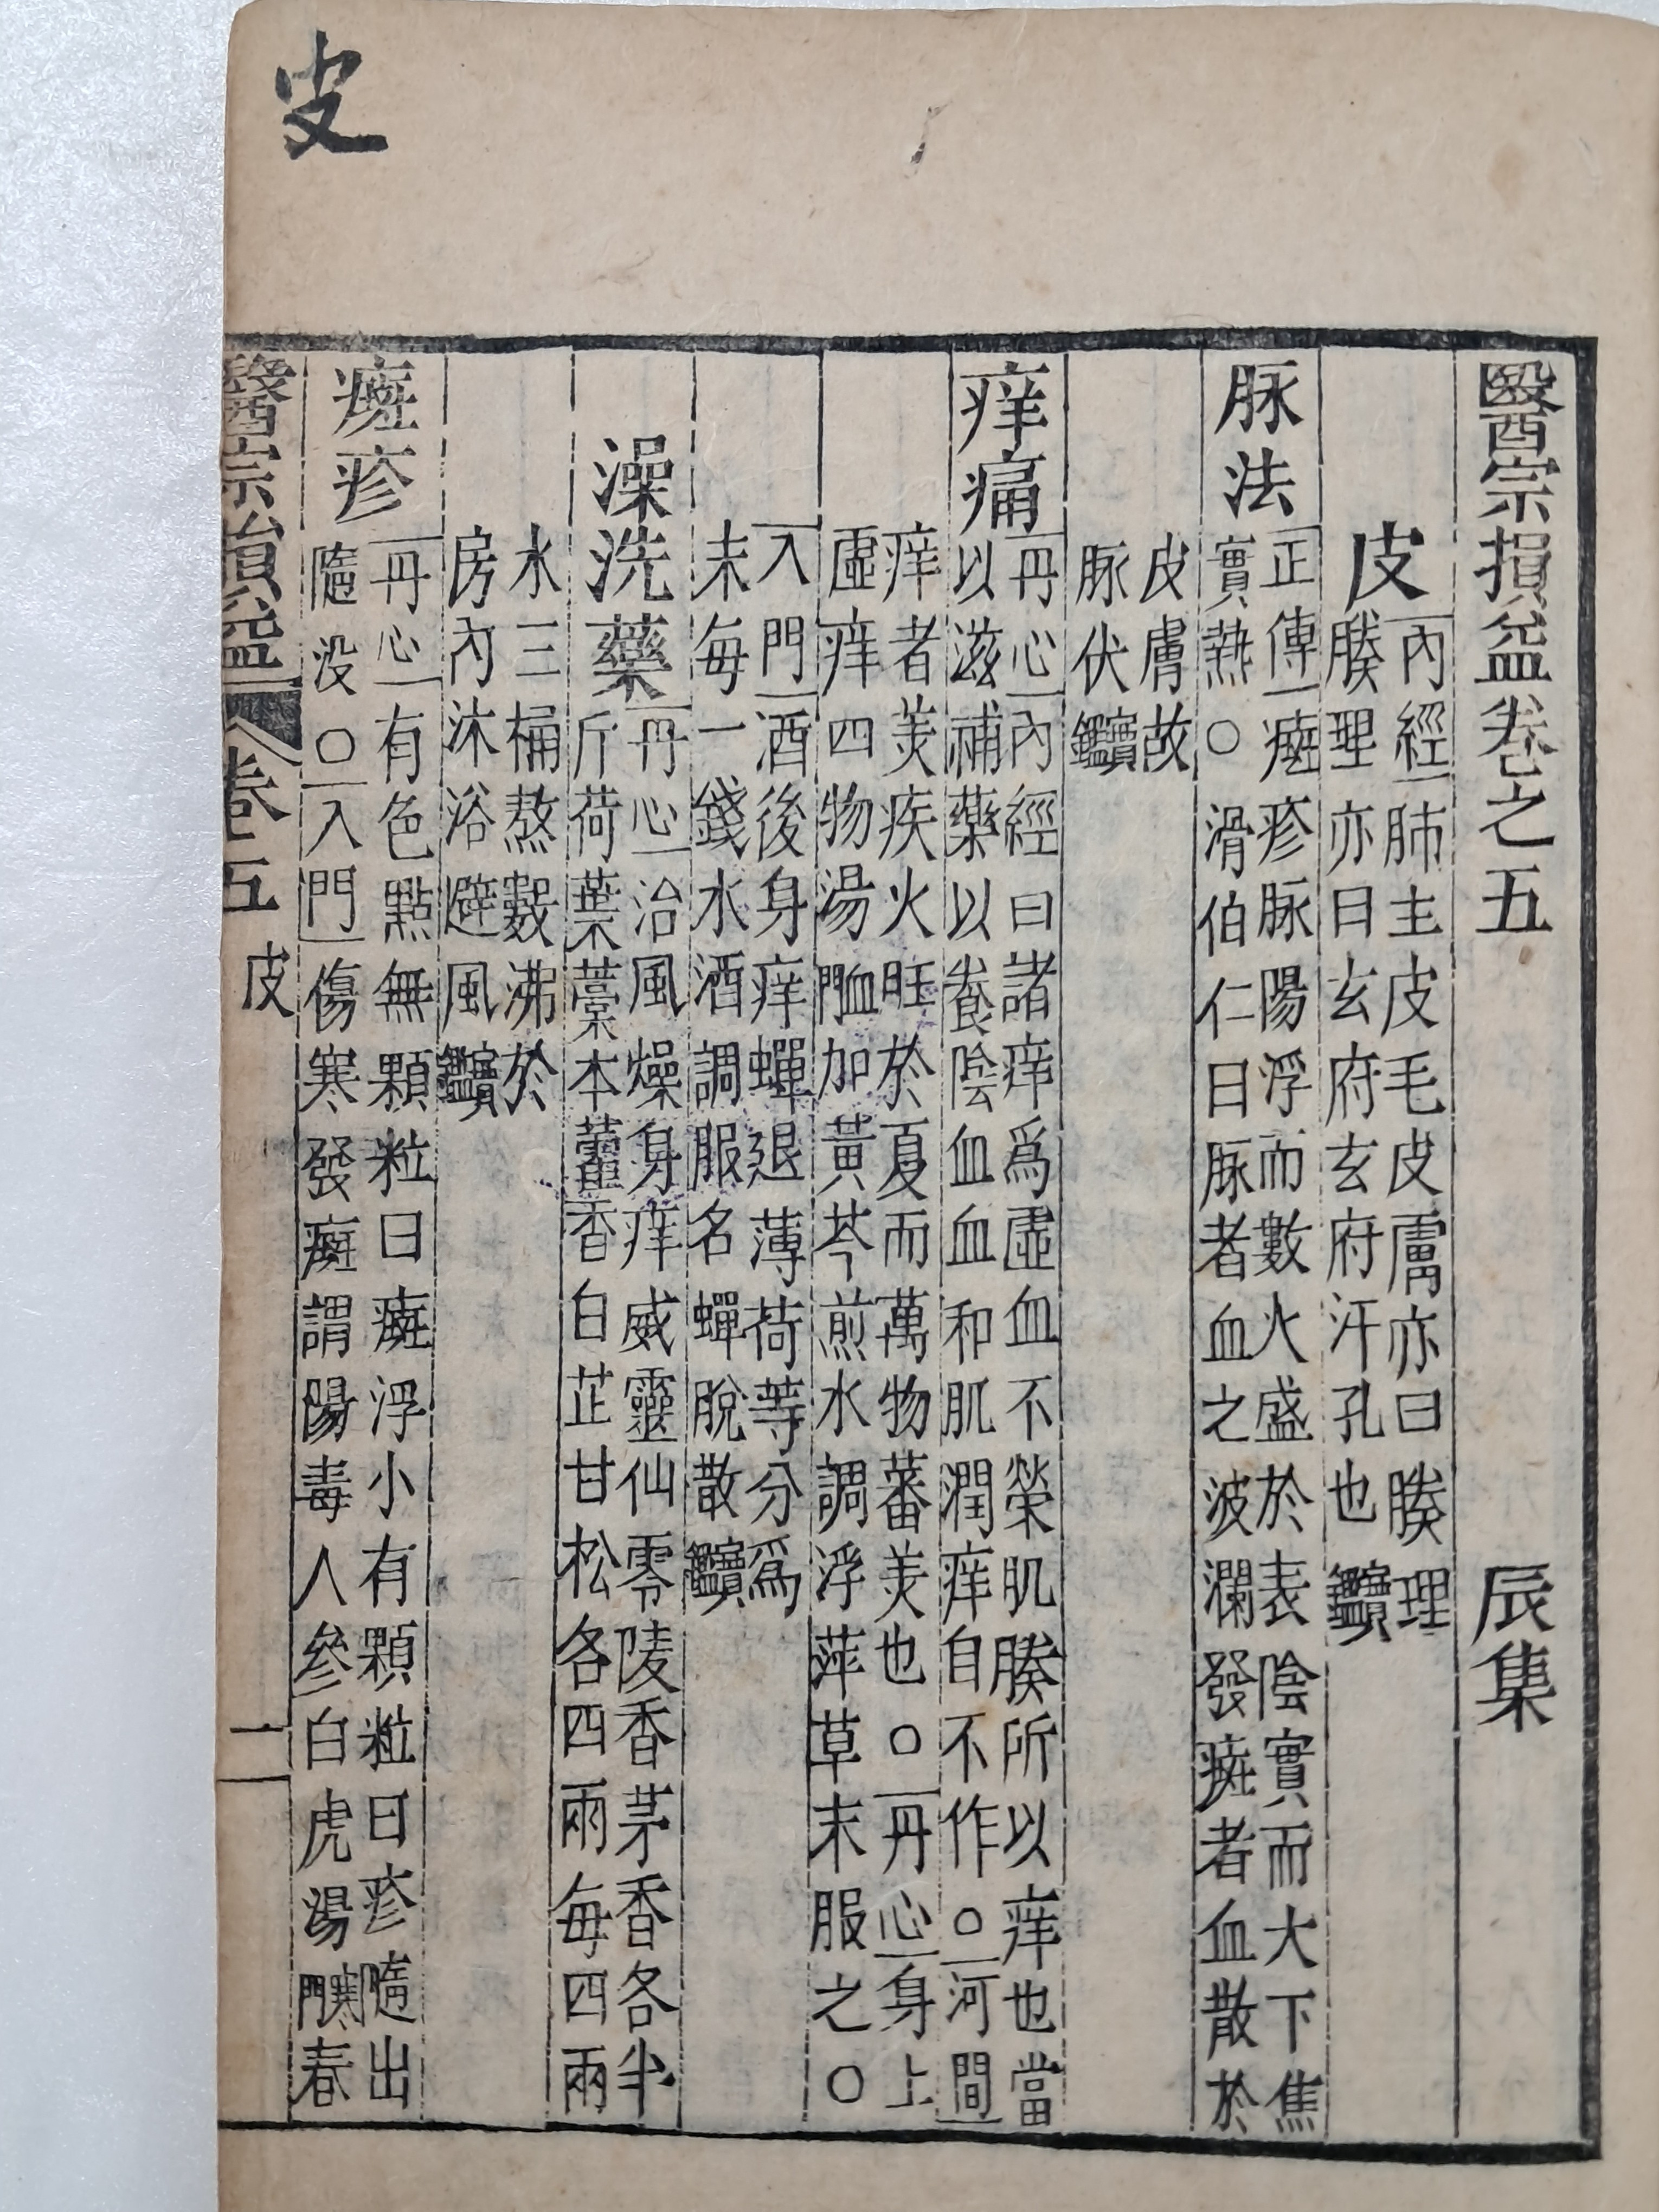 皮
醫宗損益卷之五 辰集
皮
內經肺主皮毛皮膚亦曰腠理
腠理亦曰玄府玄府汗孔也
脉法
正傳癍疹脉陽浮而數火盛於表陰實而大下焦
實熱○滑伯仁曰脉者血之波瀾發癍者血散於
皮膚故
脉伏
痒痛
丹心內經曰諸痒爲虛血不榮肌腠所以痒也當
以滋補藥以養陰血血和肌潤痒自不作○河間
痒者美疾火旺於夏而萬物蕃美也○丹心身上
虛痒四物湯加黃芩煎水調浮萍草末服之○
入門酒後身痒蟬退薄荷等分爲
末每一錢水酒調服名蟬脫散
澡洗藥
丹心治風燥身痒威靈仙零陵香茅香各半
斤荷葉藁本藿香白芷甘松各四兩每四兩
水三桶熬數沸於
房內沐浴避風
癍疹
丹心有色點無顆粒曰癍浮小有顆粒曰疹隨出
隨没○入門傷寒發癍謂陽毒人參白虎湯春
醫宗損益 卷五 皮 一